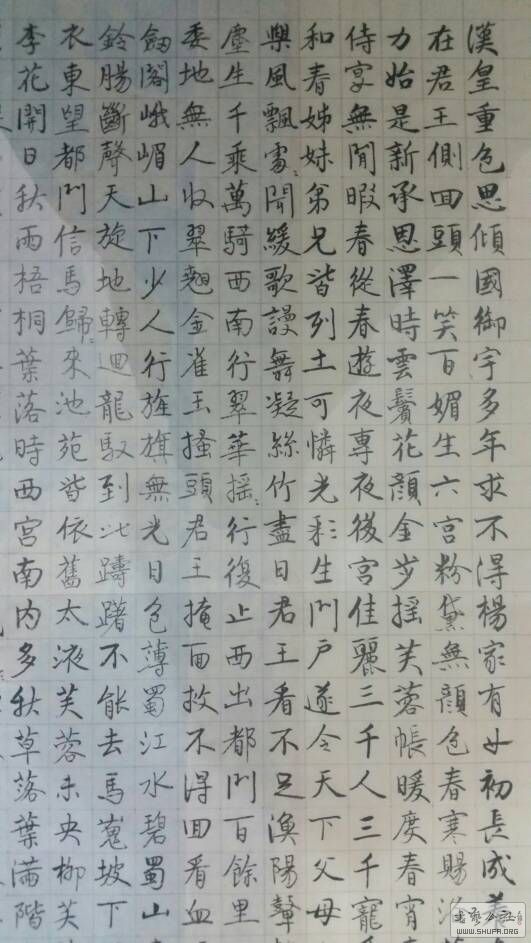 漢皇重色思傾國御宇多年求不得楊家有女初長成養
在君王側回頭一笑百媚生六宮粉黛無顏色春寒賜浴
力始是新承恩澤時雲鬢花顏金步搖芙蓉帳暖度春宵
侍宴無閒暇春從春遊夜專夜後宮佳麗三千人三千寵
和春姊妹弟兄皆列土可憐光彩生門戶遂令天下父母
樂風飄處〻聞緩歌謾舞凝絲竹盡日君王看不足漁陽鼙
塵生千乘萬騎西南行翠華搖〻行復止西出都門百餘里
委地無人收翠翹金雀玉搔頭君王掩面救不得回看血
劒閣峨嵋山下少人行旌旗無光日色薄蜀江水碧蜀山
鈴腸斷聲天旋地轉迴龍馭到此躊躇不能去馬嵬坡下
衣東望都門信馬歸〻來池苑皆依舊太液芙蓉未央柳芙
李花開日秋雨梧桐葉落時西宮南內多秋草落葉滿階
WWW.SHUFA.ORG